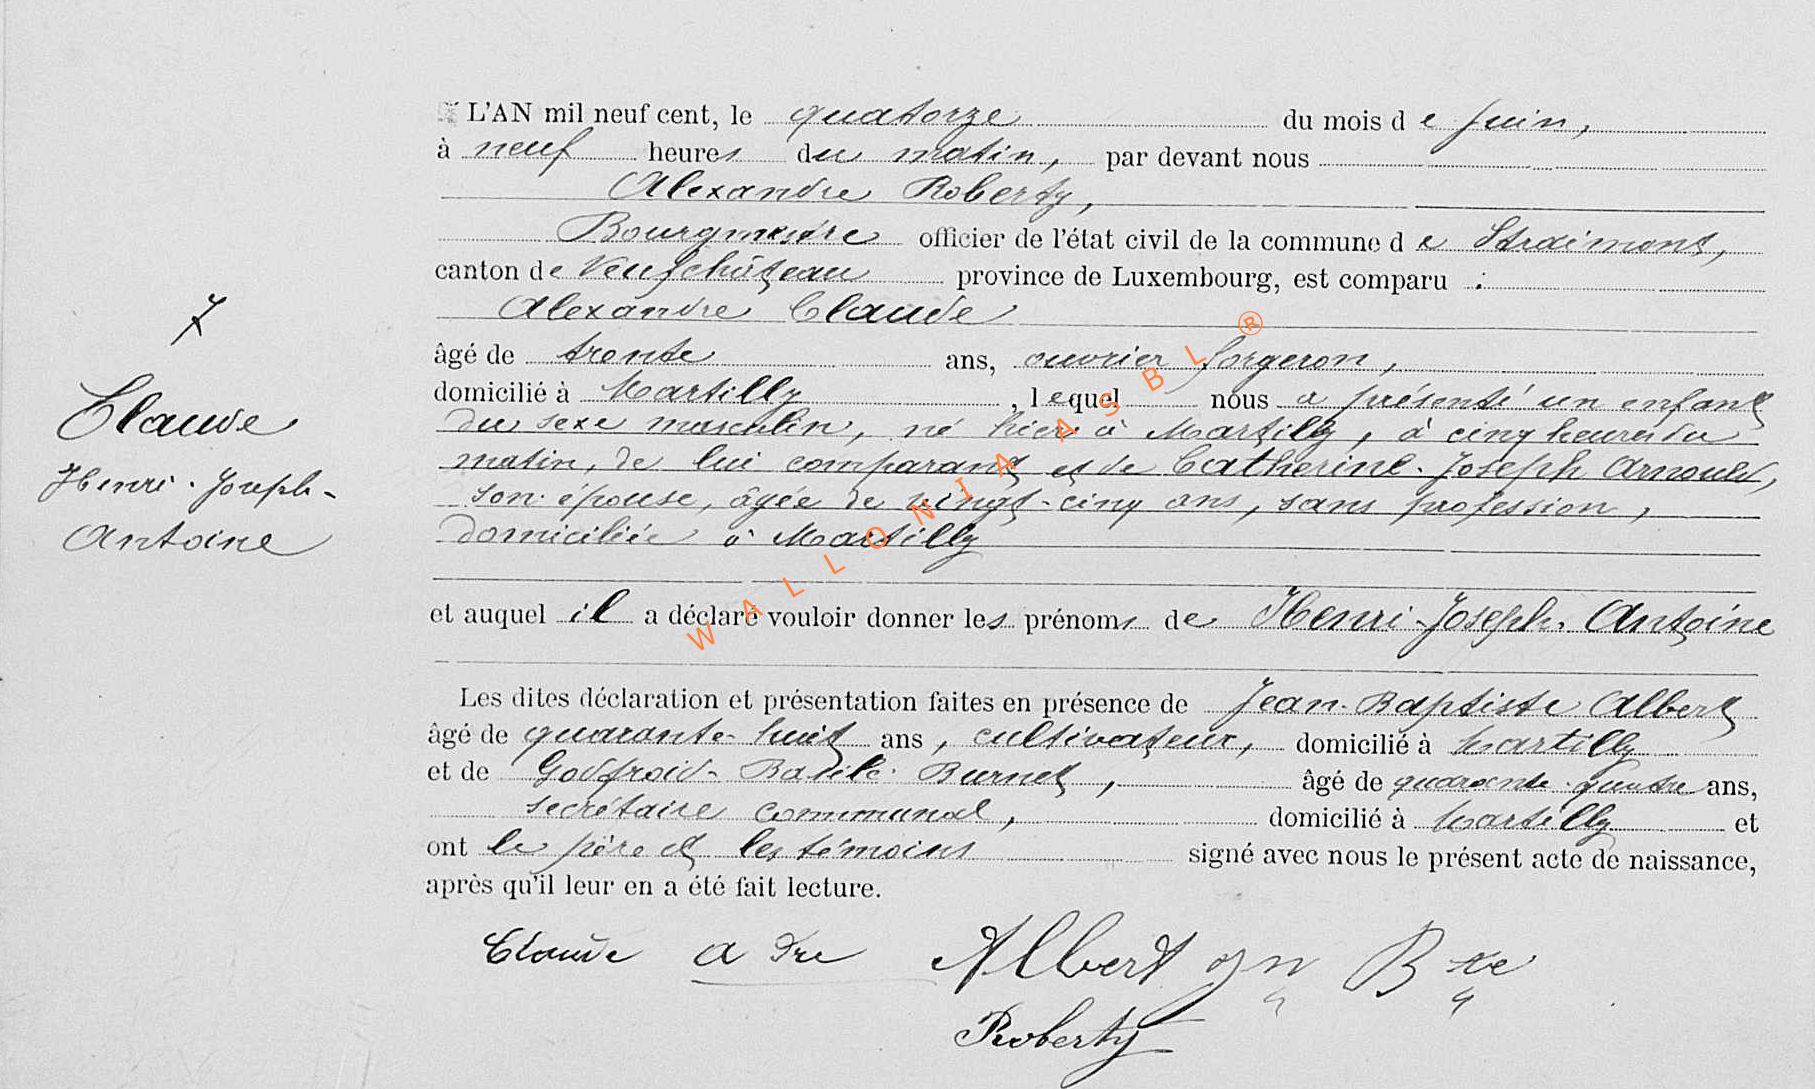 L'AN mil neuf cent, le quatorze du mois de Juin,
à neuf heures du matin, par devant nous
Alexandre Roberty,
Bourgmestre officier de l'état civil de la commune de Straimont,
canton de Neufchâteau province de Luxembourg, est comparu :
Alexandre Claude
âgé de trente ans, ouvrier forgeron,
domicilié à Martilly, lequel nous a présenté un enfant
du sexe masculin, né hier à Martilly, à cinq heures du
matin, de lui comparant et de Catherine-Joseph Arnould,
son épouse, âgée de vingt-cinq ans, sans profession,
domiciliée à Martilly
et auquel il a déclaré vouloir donner les prénoms de Henri-Joseph-Antoine
Les dites déclaration et présentation faites en présence de Jean-Baptiste Albert
âgé de quarante-huit ans, cultivateur, domicilié à Martilly
et de Godfroid-Basile Burnet, âgé de quarante-quatre ans,
secrétaire communal, domicilié à Martilly et
ont le père et les témoins signé avec nous le présent acte de naissance,
après qu'il leur en a été fait lecture.
7
Claude
Henri-Joseph-
Antoine
Claude a dre Albert Jn Bte
Roberty
WALLONIA ASBL ®